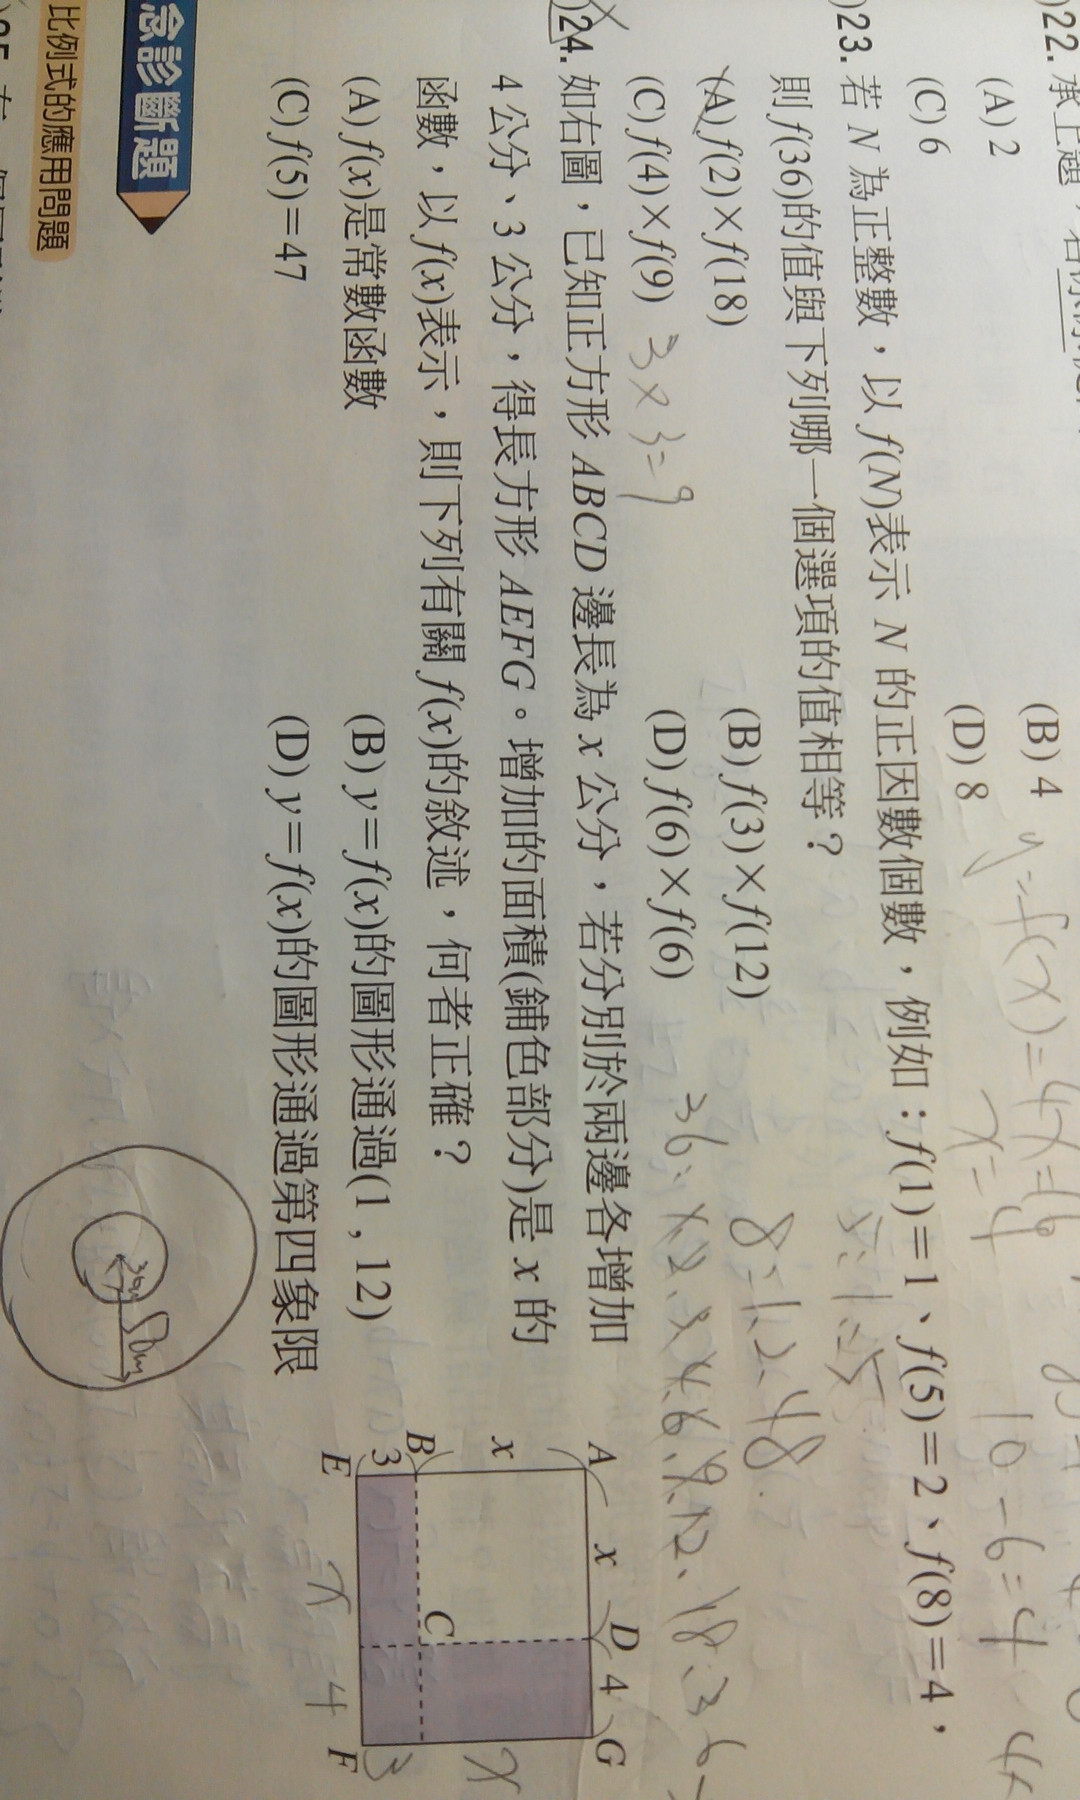 22. 承上題，若
(A) 2
(B) 4
(C) 6
(D) 8
y=f(x)=4x=16
x=4
10-6=4
23. 若 N 為正整數，以 f(N)表示 N 的正因數個數，例如：f(1)=1、f(5)=2、f(8)=4，
則 f(36)的值與下列哪一個選項的值相等？
5:1.5
8=1.2.48
(A) f(2)×f(18)
(B) f(3)×f(12)
(C) f(4)×f(9)
3×3=9
(D) f(6)×f(6)
36:1.2.3.4.6.9.12.18.36
24. 如右圖，已知正方形 ABCD 邊長為 x 公分，若分別於兩邊各增加
4 公分、3 公分，得長方形 AEFG。增加的面積(鋪色部分)是 x 的
函數，以 f(x)表示，則下列有關 f(x)的敘述，何者正確？
(A) f(x)是常數函數
(B) y=f(x)的圖形通過(1 , 12)
(C) f(5)=47
(D) y=f(x)的圖形通過第四象限
A
x
D
4
G
x
x
B
C
3
3
E
F
x
4
急診斷題
比例式的應用問題
25.